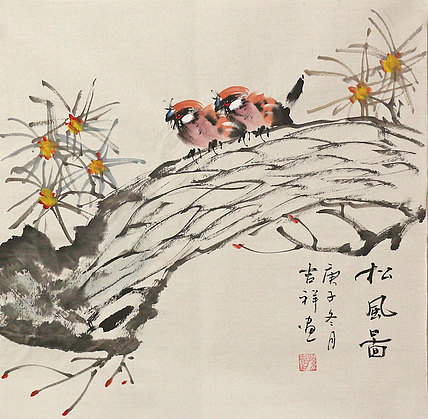 松風圖
庚子冬月
吉祥畫